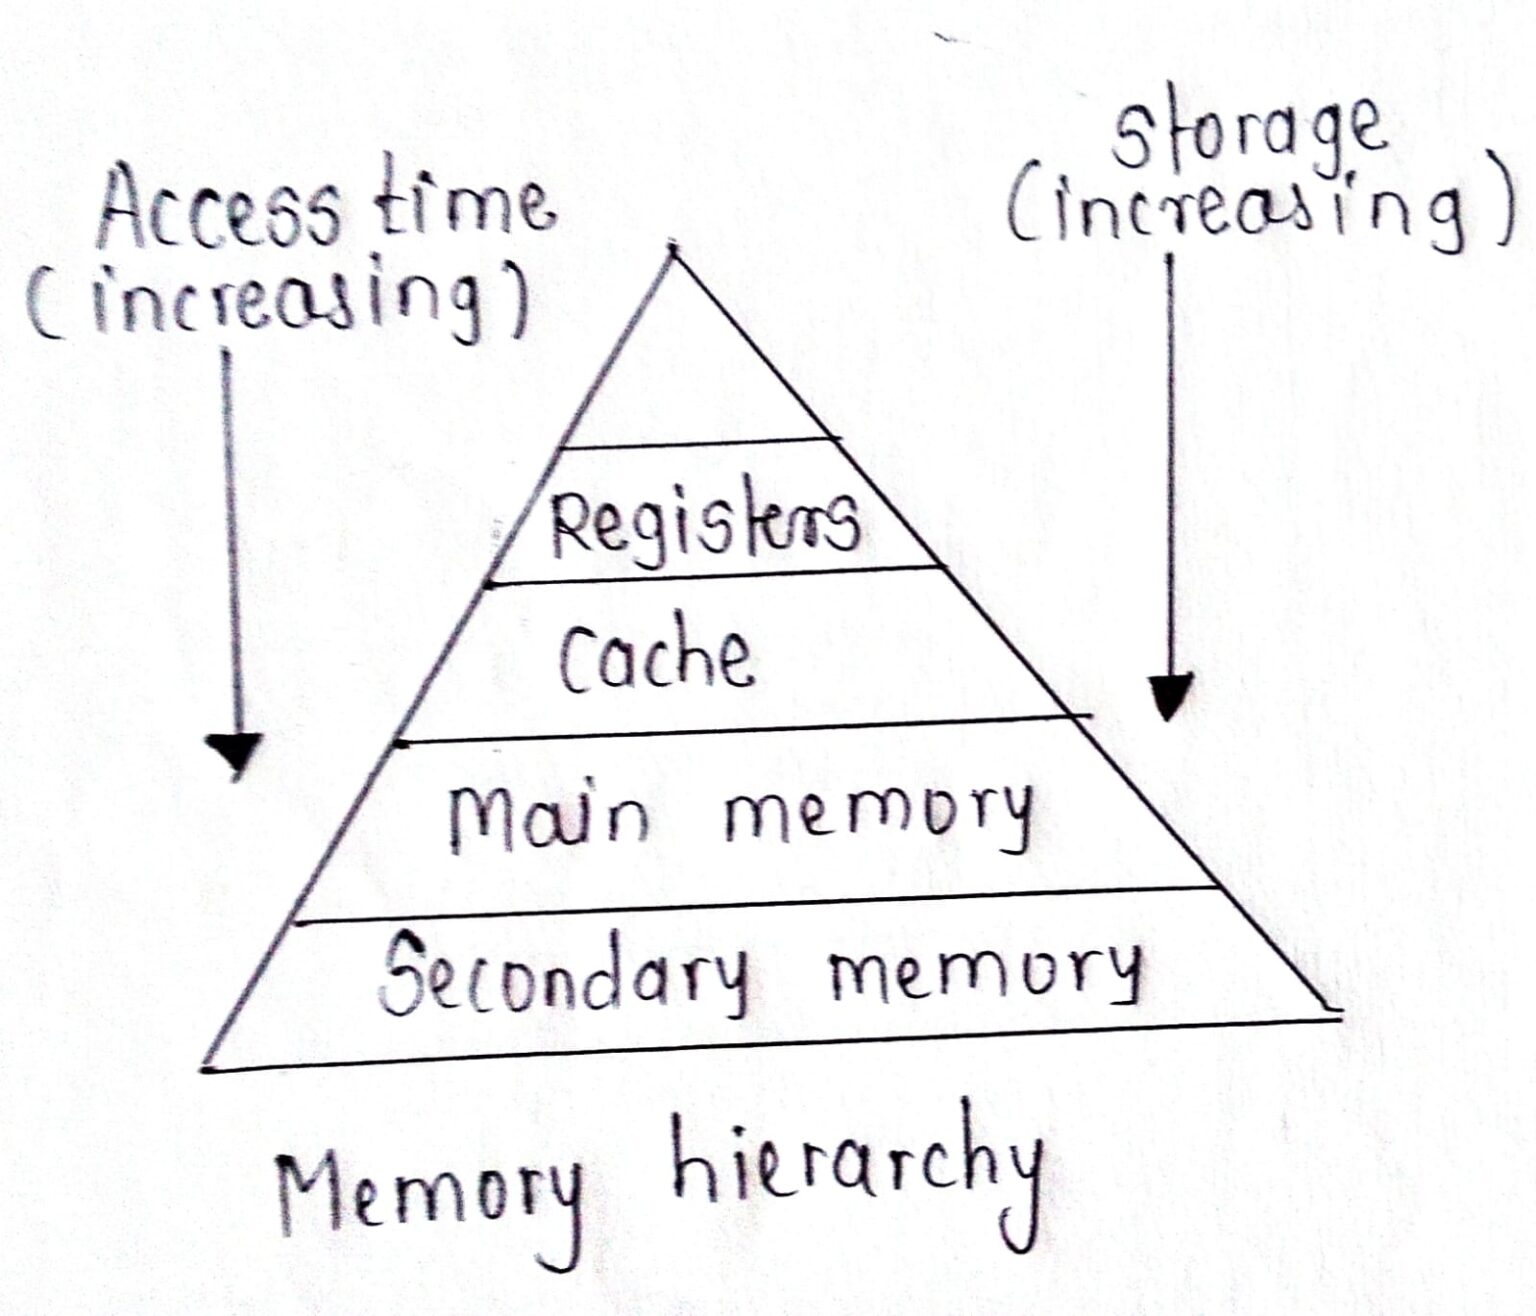 Access time
(increasing)
Storage
(increasing)
Registers
Cache
Main memory
Secondary memory
Memory hierarchy